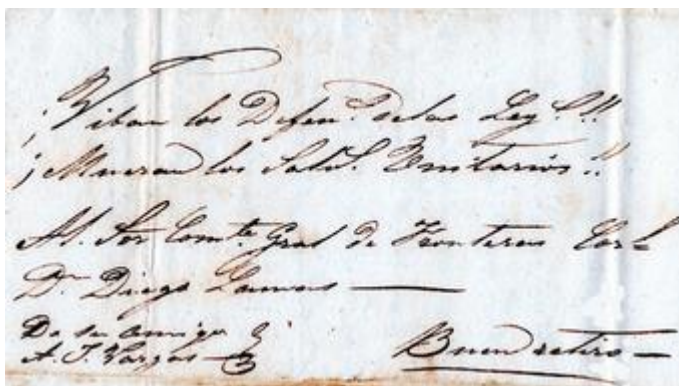 ¡Viban los Defens. de las Leys.!!
¡Mueran los Salvs. Unitarios!!
Al Sor Comte. Gral de Fronteras Corl
Dn Diego Lamas —
De su amigo
A. J. Vargas
Buen retiro —